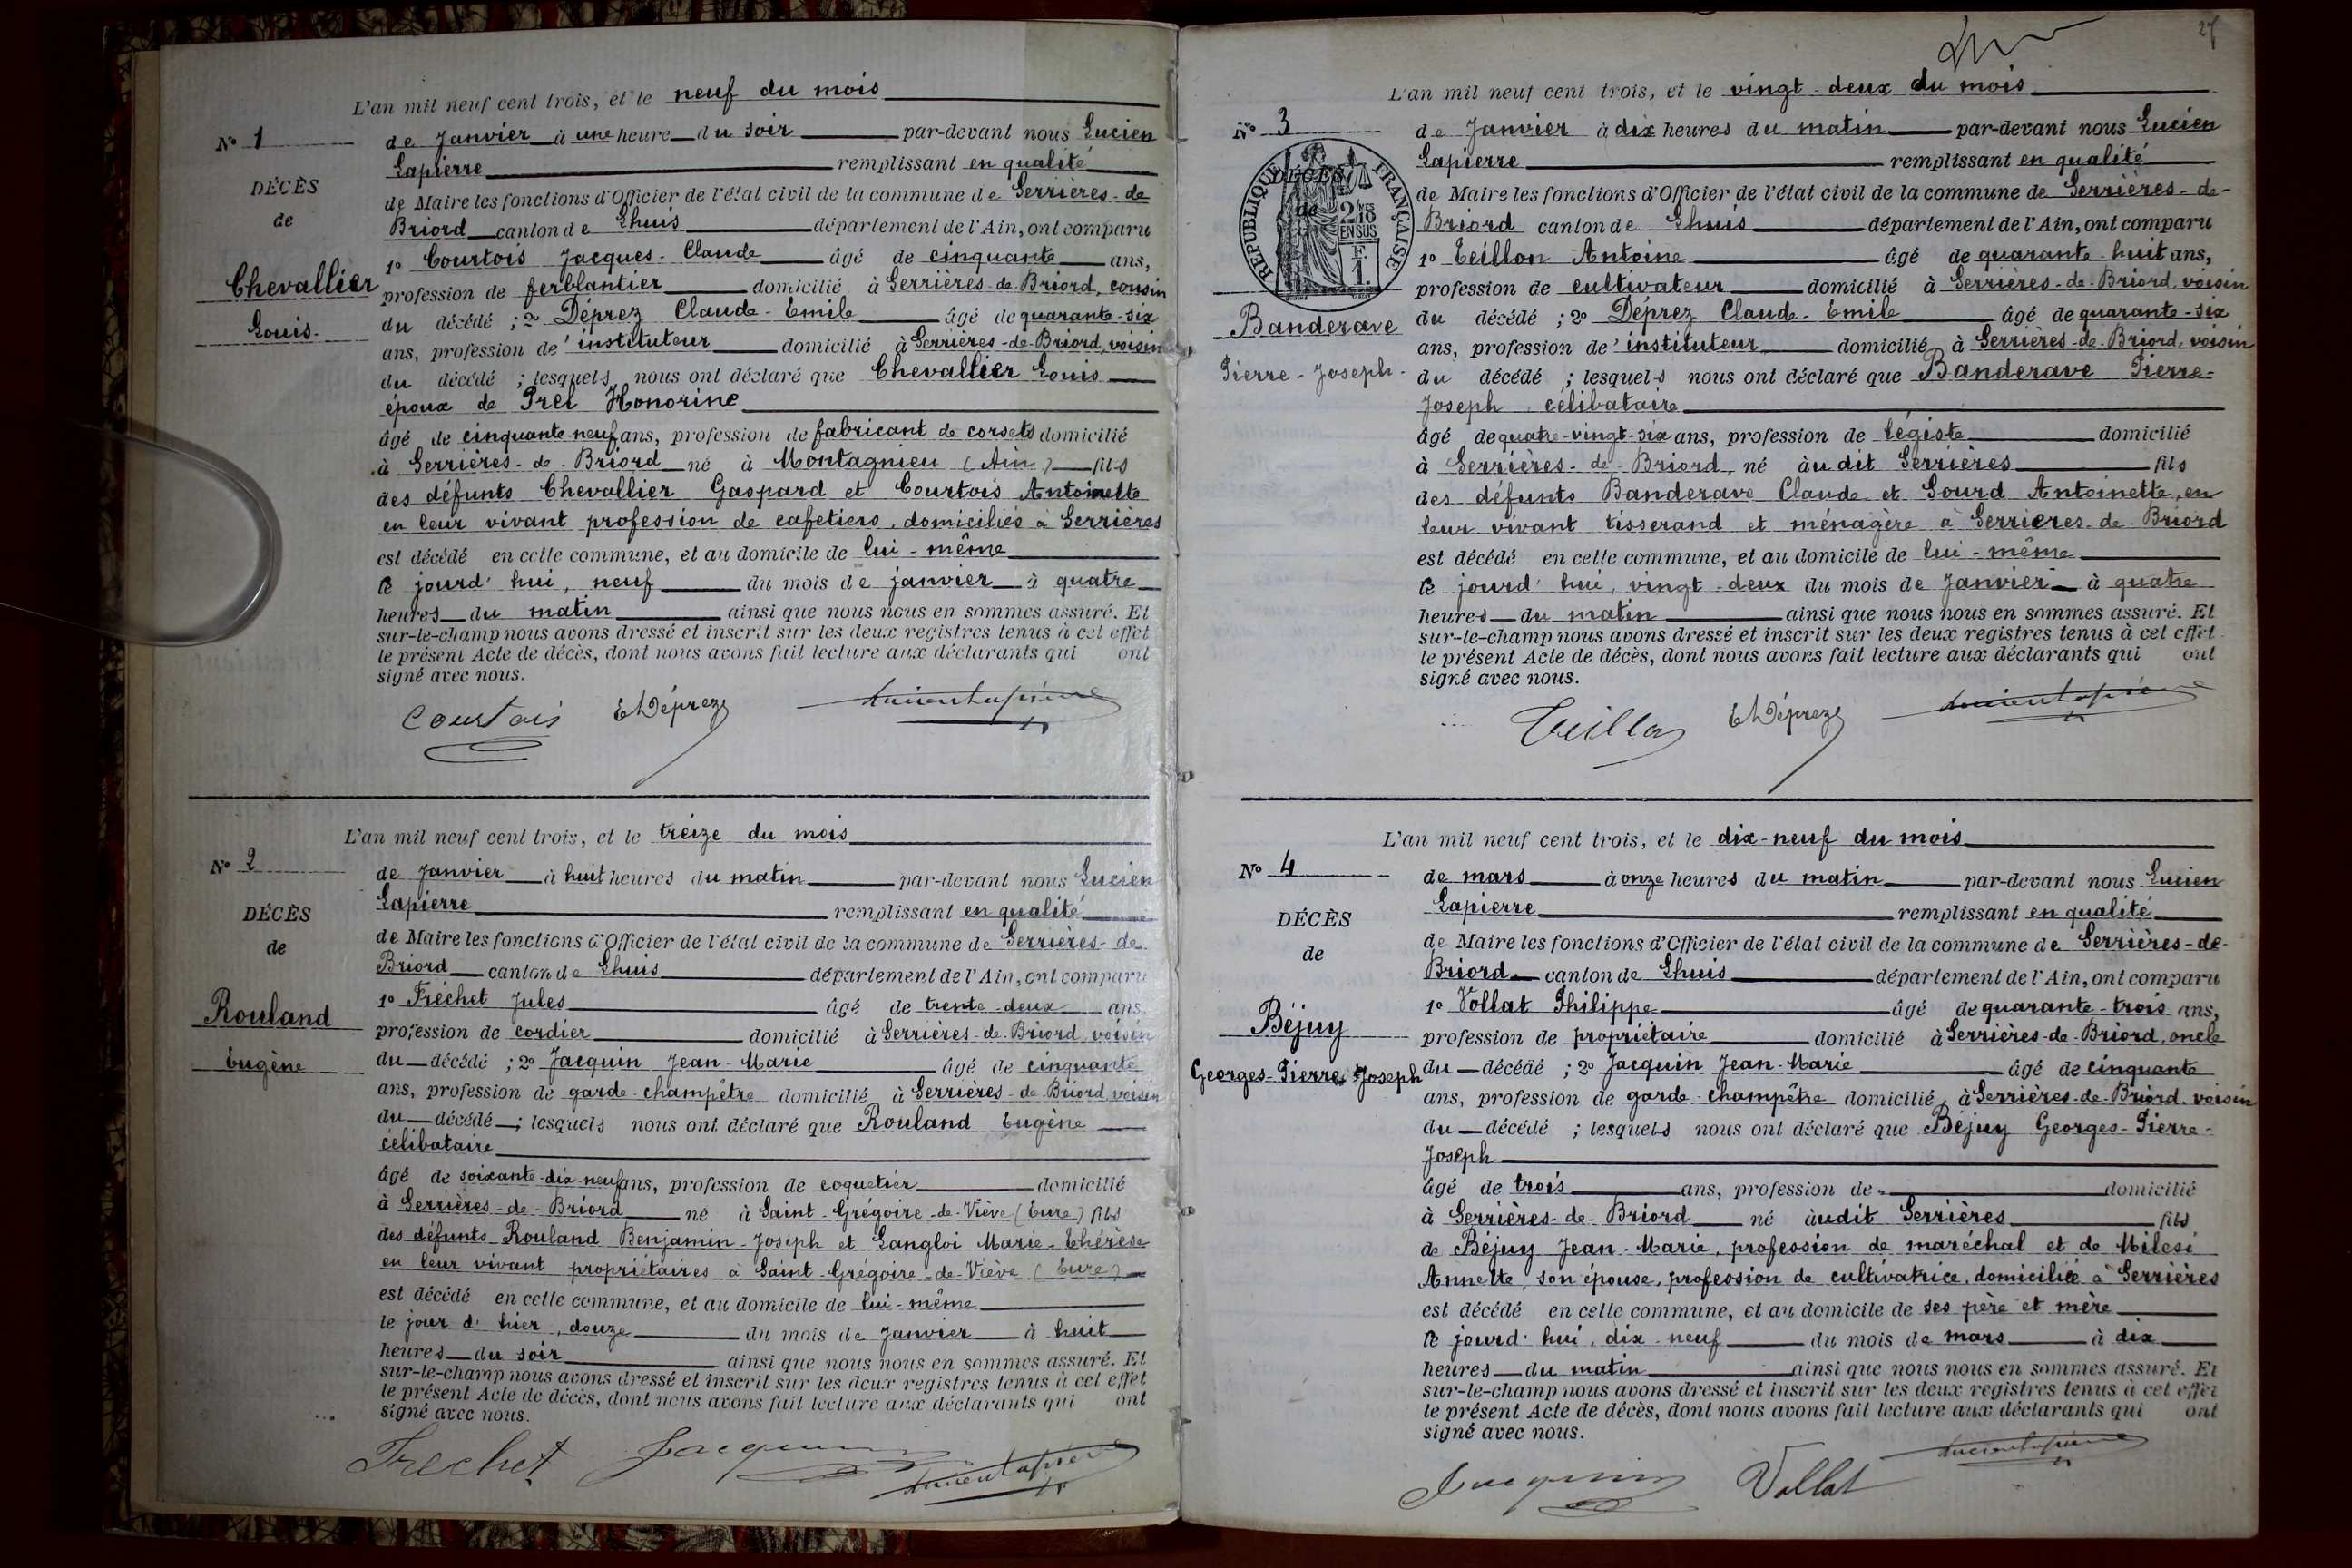 L'an mil neuf cent trois, et le neuf du mois
N° 1
de Janvier à une heure du soir par-devant nous Lucien
Lapierre remplissant en qualité
DÉCÈS
de Maire les fonctions d'Officier de l'état civil de la commune de Serrières-de-
de
Briord canton de Lhuis département de l'Ain, ont comparu
1° Courtois Jacques-Claude âgé de cinquante ans,
Chevallier
profession de ferblantier domicilié à Serrières-de-Briord, cousin
du décédé ; 2° Déprez Claude-Emile âgé de quarante-six
Louis
ans, profession de instituteur domicilié à Serrières-de-Briord, voisin
du décédé ; lesquels nous ont déclaré que Chevallier Louis
époux de Prel Honorine
âgé de cinquante-neuf ans, profession de fabricant de corsets domicilié
à Serrières-de-Briord né à Montagnieu (Ain) fils
des défunts Chevallier Gaspard et Courtois Antoinette
en leur vivant profession de cafetiers, domiciliés à Serrières
est décédé en cette commune, et au domicile de lui-même
ce jourd'hui, neuf du mois de janvier à quatre
heures du matin ainsi que nous nous en sommes assuré. Et
sur-le-champ nous avons dressé et inscrit sur les deux registres tenus à cet effet
le présent Acte de décès, dont nous avons fait lecture aux déclarants qui ont
signé avec nous.
Courtois EDéprez Lucien Lapierre
L'an mil neuf cent trois, et le treize du mois
N° 2
de Janvier à huit heures du matin par-devant nous Lucien
Lapierre remplissant en qualité
DÉCÈS
de Maire les fonctions d'Officier de l'état civil de la commune de Serrières-de-
de
Briord canton de Lhuis département de l'Ain, ont comparu
1° Fréchet Jules âgé de trente-deux ans,
Rouland
profession de cordier domicilié à Serrières-de-Briord, voisin
du décédé ; 2° Jacquin Jean-Marie âgé de cinquante
Eugène
ans, profession de garde-champêtre domicilié à Serrières-de-Briord, voisin
du décédé ; lesquels nous ont déclaré que Rouland Eugène
célibataire
âgé de soixante-dix-neuf ans, profession de coquetier domicilié
à Serrières-de-Briord né à Saint-Grégoire-de-Viève (Eure) fils
des défunts Rouland Benjamin-Joseph et Langloi Marie-Thérèse
en leur vivant propriétaires à Saint-Grégoire-de-Viève (Eure)
est décédé en cette commune, et au domicile de lui-même
le jour d'hier, douze du mois de Janvier à huit
heures du soir ainsi que nous nous en sommes assuré. Et
sur-le-champ nous avons dressé et inscrit sur les deux registres tenus à cet effet
le présent Acte de décès, dont nous avons fait lecture aux déclarants qui ont
signé avec nous.
Frechet Jacquin Lucien Lapierre
27
L'an mil neuf cent trois, et le vingt-deux du mois
N° 3
de Janvier à dix heures du matin par-devant nous Lucien
Lapierre remplissant en qualité
DÉCÈS
de Maire les fonctions d'Officier de l'état civil de la commune de Serrières-de-
de
RÉPUBLIQUE FRANÇAISE
2/10 EN SUS
F. 1.
Briord canton de Lhuis département de l'Ain, ont comparu
1° Teillon Antoine âgé de quarante-huit ans,
profession de cultivateur domicilié à Serrières-de-Briord, voisin
Banderave
du décédé ; 2° Déprez Claude-Emile âgé de quarante-six
ans, profession de instituteur domicilié à Serrières-de-Briord, voisin
Pierre-Joseph
du décédé ; lesquels nous ont déclaré que Banderave Pierre-
Joseph, célibataire
âgé de quatre-vingt-six ans, profession de légiste domicilié
à Serrières-de-Briord né àu dit Serrières fils
des défunts Banderave Claude et Gourd Antoinette, en
leur vivant tisserand et ménagère à Serrières-de-Briord
est décédé en cette commune, et au domicile de lui-même
ce jourd'hui, vingt-deux du mois de Janvier à quatre
heures du matin ainsi que nous nous en sommes assuré. Et
sur-le-champ nous avons dressé et inscrit sur les deux registres tenus à cet effet
le présent Acte de décès, dont nous avons fait lecture aux déclarants qui ont
signé avec nous.
Teillon EDéprez Lucien Lapierre
L'an mil neuf cent trois, et le dix-neuf du mois
N° 4
de mars à onze heures du matin par-devant nous Lucien
Lapierre remplissant en qualité
DÉCÈS
de Maire les fonctions d'Officier de l'état civil de la commune de Serrières-de-
de
Briord canton de Lhuis département de l'Ain, ont comparu
1° Vollat Philippe âgé de quarante-trois ans,
Béjuy
profession de propriétaire domicilié à Serrières-de-Briord, oncle
Georges-Pierre-Joseph
du décédé ; 2° Jacquin Jean-Marie âgé de cinquante
ans, profession de garde-champêtre domicilié à Serrières-de-Briord, voisin
du décédé ; lesquels nous ont déclaré que Béjuy Georges-Pierre-
Joseph
âgé de trois ans, profession de domicilié
à Serrières-de-Briord né àudit Serrières fils
de Béjuy Jean-Marie, profession de maréchal et de Milesi
Annette, son épouse, profession de cultivatrice, domiciliée à Serrières
est décédé en cette commune, et au domicile de ses père et mère
ce jourd'hui, dix-neuf du mois de mars à dix
heures du matin ainsi que nous nous en sommes assuré. Et
sur-le-champ nous avons dressé et inscrit sur les deux registres tenus à cet effet
le présent Acte de décès, dont nous avons fait lecture aux déclarants qui ont
signé avec nous.
Jacquin Vollat Lucien Lapierre